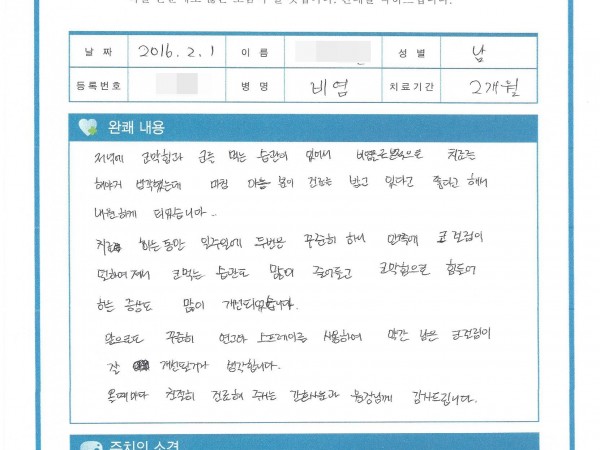 날 짜 2016. 2. 1 이 름 성 별 남
등록번호 병 명 비염 치료기간 2개월
완쾌 내용
저녁에 코막힘과 코를 먹는 습관이 있어서 치료를
해야겠 생각했는데 마침 아름 봄이 진료를 받고 있다고 좋다고 해서
내원하게 되었습니다..
치료 하는동안 일주일에 두번은 꾸준히 하니 코 점점이
코먹는 습관도 많이 줄어들고 코막힘으로 힘들어
하는 증상도 많이 개선되었습니다.
앞으로도 꾸준히 연고와 스프레이를 사용하여 약간 남은
잘 개선될거라 생각합니다.
올때마다 친절히 진료해 주시는 간호사분과 원장님께 감사드립니다.
주치의 소견